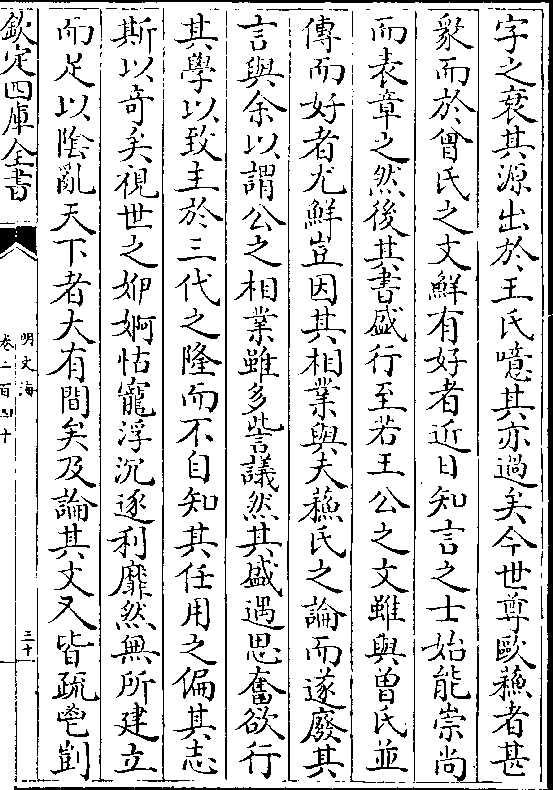 字之衰其源出於王氏噫其亦過矣今世尊歐蘓者甚
衆而於曾氏之文鮮有好者近日知言之士始能崇尚
而表章之然後其書盛行至若王公之文雖與曽氏並
傳而好者尤鮮豈因其相業與夫蘓氏之論而遂廢其
言與余以謂公之相業雖多訾議然其盛遇思奮欲行
其學以致主於三代之隆而不自知其任用之偏其志
斯以奇矣視世之婀怙寵浮沉逐利靡然無所建立
而足以陰亂天下者大有間矣及論其文又皆疏鬯剴
欽定四庫全書
明文海
卷二百四十
三十